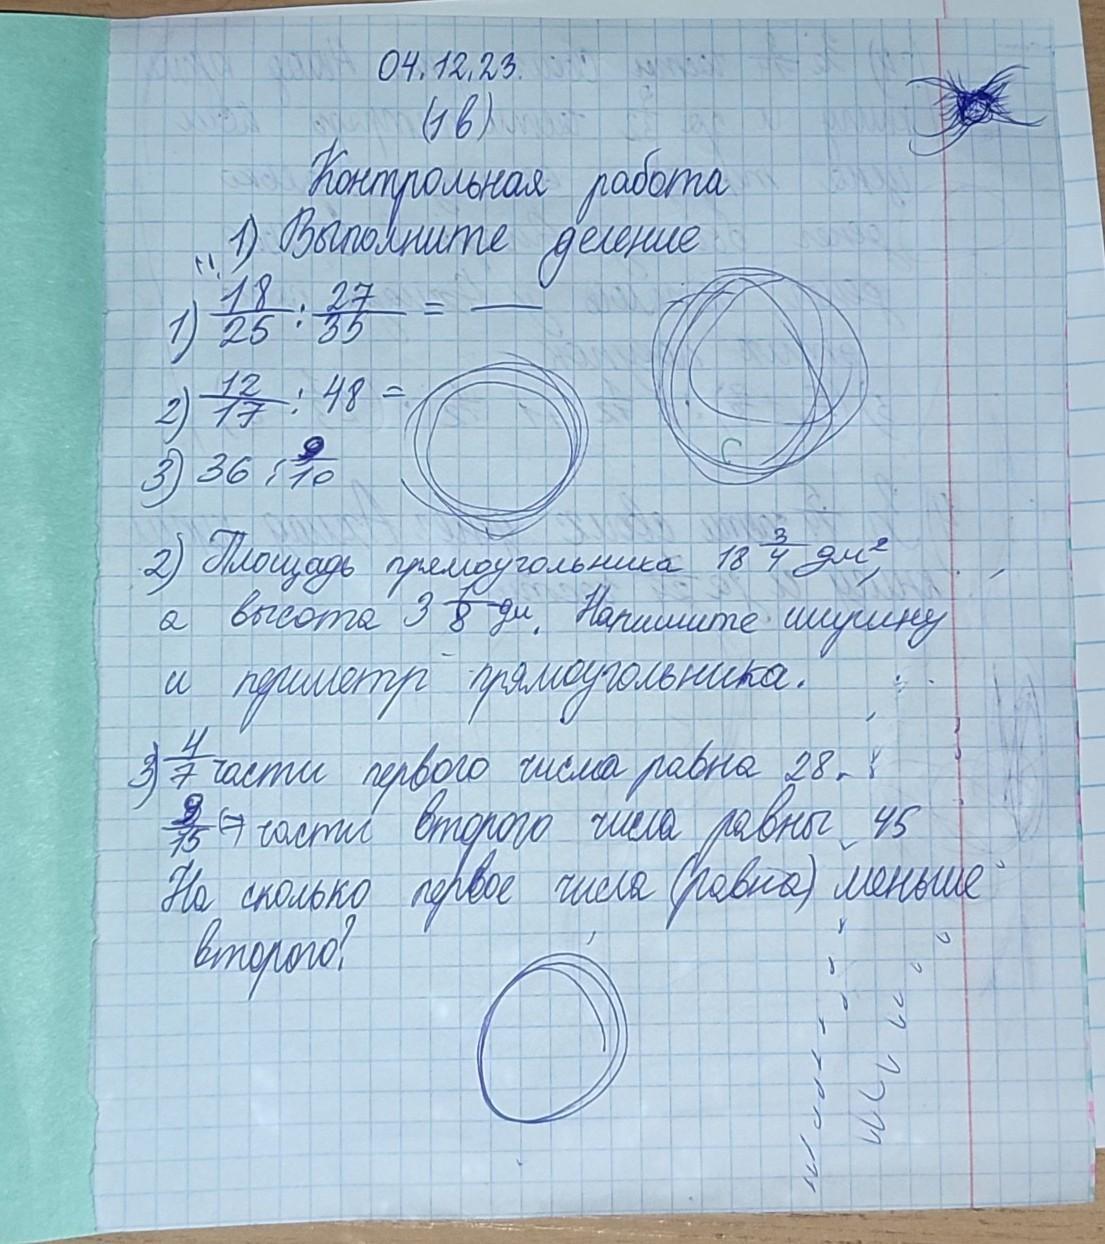 04.12.23.
(1в)
Контрольная работа
1) Выполните деление
1) 18/25 : 27/35 = —
2) 12/17 : 48 =
3) 36 : 9/10
2) Площадь прямоугольника 18 3/4 дм²,
а высота 3 1/8 дм. Напишите ширину
и периметр прямоугольника.
3) 4/7 части первого числа равна 28.
9/15 части второго числа равны 45
На сколько первое числа (равна) меньше
второго?